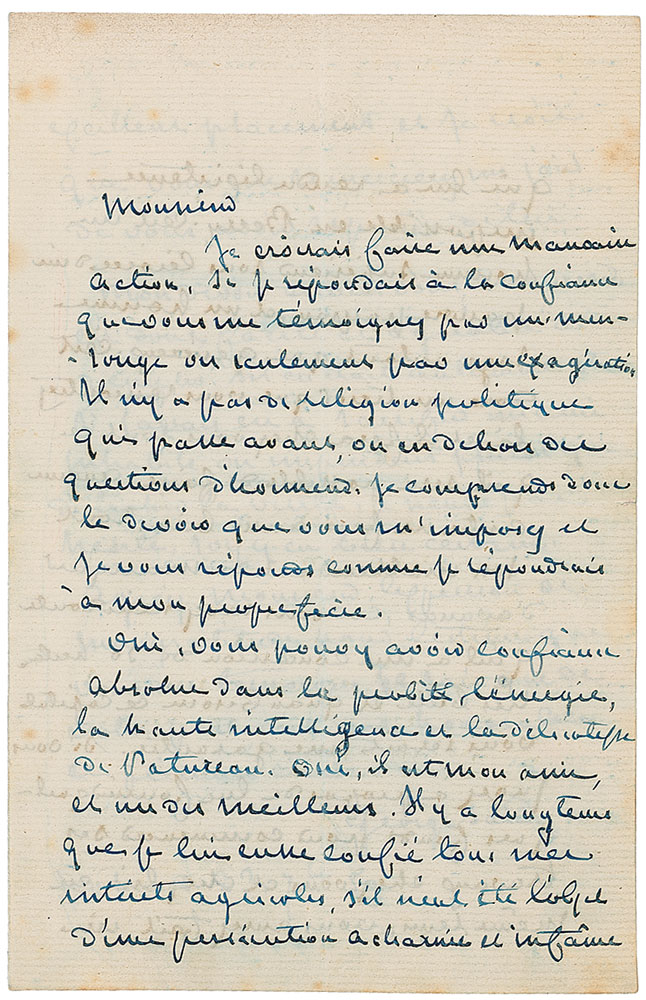 Monsieur
Je croirais faire une mauvaise
action, si je répondais à la confiance
que vous me témoignez par un men-
-songe ou seulement par une exagération
Il n'y a pas de religion politique
qui passe avant, ou en dehors des
questions d'honneur. Je comprends donc
le devoir que vous m'imposez et
je vous réponds comme je répondrais
à mon propre frère.
Oui, vous pouvez avoir confiance
absolue dans la probité, l'énergie,
la haute intelligence et la délicatesse
de Patureau. Oui, il est mon ami,
et un des meilleurs. Il y a longtems
que je lui eusse confié tous mes
intérêts agricoles, s'il n'eut été l'objet
d'une persécution acharnée et infâme